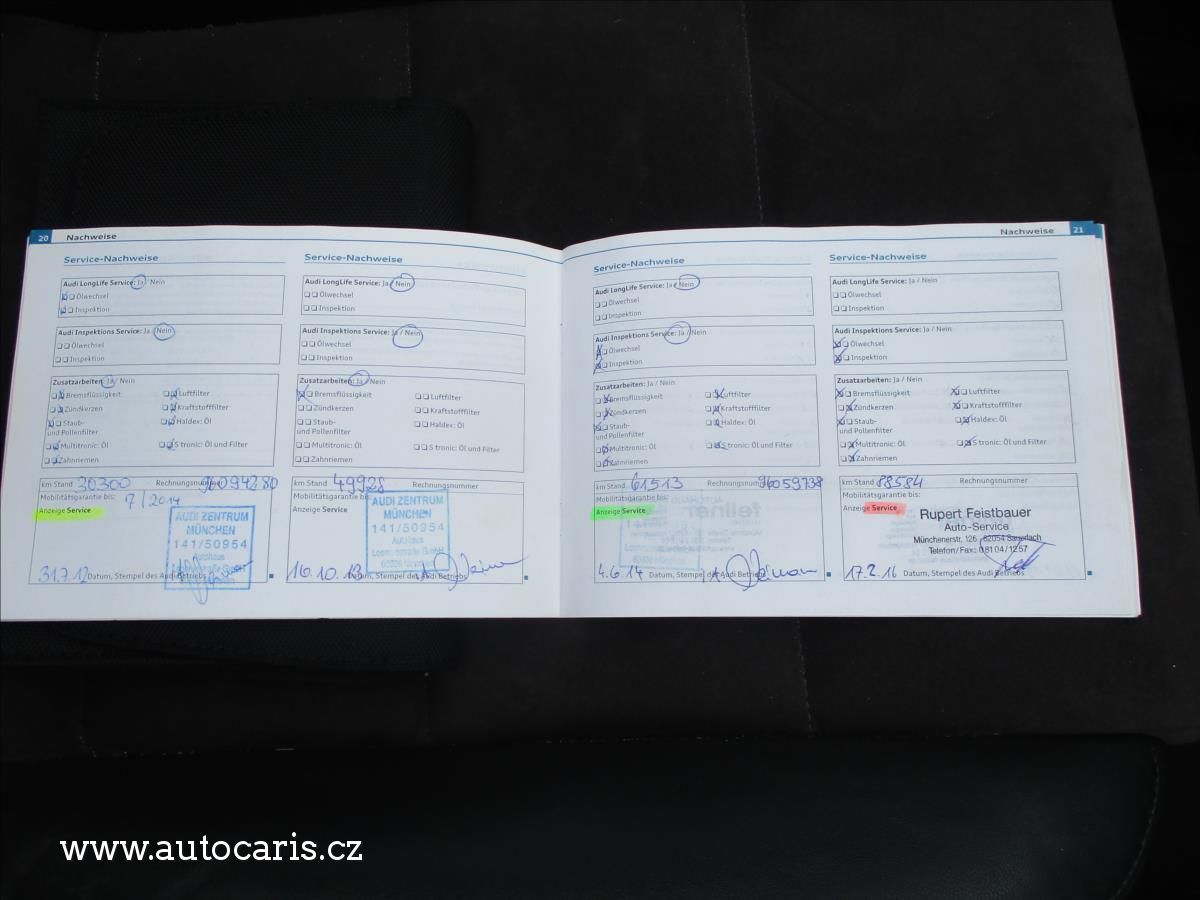 20 Nachweise
Service-Nachweise
Audi LongLife Service: Ja / Nein
Ölwechsel
Inspektion
Audi Inspektions Service: Ja / Nein
Ölwechsel
Inspektion
Zusatzarbeiten: Ja / Nein
Bremsflüssigkeit Luftfilter
Zündkerzen Kraftstofffilter
Staub- Haldex: Öl
und Pollenfilter
Multitronic: Öl S tronic: Öl und Filter
Zahnriemen
km Stand 30300 Rechnungsnummer
Mobilitätsgarantie bis: 7/2014
Anzeige Service
AUDI ZENTRUM
MÜNCHEN
141/50954
Autohaus
31.7.12 Datum, Stempel des Audi Betriebs
Service-Nachweise
Audi LongLife Service: Ja / Nein
Ölwechsel
Inspektion
Audi Inspektions Service: Ja / Nein
Ölwechsel
Inspektion
Zusatzarbeiten: Ja / Nein
Bremsflüssigkeit Luftfilter
Zündkerzen Kraftstofffilter
Staub- Haldex: Öl
und Pollenfilter
Multitronic: Öl S tronic: Öl und Filter
Zahnriemen
km Stand 49928 Rechnungsnummer
Mobilitätsgarantie bis:
Anzeige Service
AUDI ZENTRUM
MÜNCHEN
141/50954
Autohaus
16.10.13 Datum, Stempel des Audi Betriebs
Nachweise 21
Service-Nachweise
Audi LongLife Service: Ja / Nein
Ölwechsel
Inspektion
Audi Inspektions Service: Ja / Nein
Ölwechsel
Inspektion
Zusatzarbeiten: Ja / Nein
Bremsflüssigkeit Luftfilter
Zündkerzen Kraftstofffilter
Staub- Haldex: Öl
und Pollenfilter
Multitronic: Öl S tronic: Öl und Filter
Zahnriemen
km Stand 61513 Rechnungsnummer 96059738
Mobilitätsgarantie bis:
Anzeige Service
4.6.14 Datum, Stempel des Audi Betriebs
Service-Nachweise
Audi LongLife Service: Ja / Nein
Ölwechsel
Inspektion
Audi Inspektions Service: Ja / Nein
Ölwechsel
Inspektion
Zusatzarbeiten: Ja / Nein
Bremsflüssigkeit Luftfilter
Zündkerzen Kraftstofffilter
Staub- Haldex: Öl
und Pollenfilter
Multitronic: Öl S tronic: Öl und Filter
Zahnriemen
km Stand 88584 Rechnungsnummer
Mobilitätsgarantie bis:
Anzeige Service
Rupert Feistbauer
Auto-Service
Münchenerstr. 126 82054 Sauerlach
Telefon/Fax: 08104/1257
17.2.16 Datum, Stempel des Audi Betriebs
www.autocaris.cz